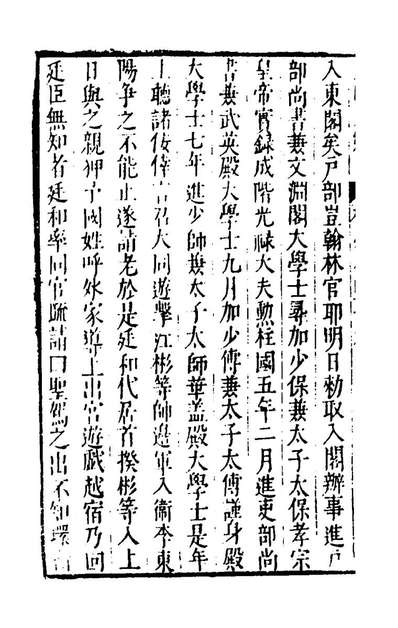 入東閣矣戸部豈翰林官耶明日勑取入閣辦事進戸
部尚書兼文淵閣大學士尋加少保兼太子太保孝宗
皇帝實録成階光祿大夫勲柱國五年二月進吏部尚
書兼武英殿大學士九月加少傅兼太子太傅謹身殿
大學士七年進少師兼太子太師華盖殿大學士是年
上聽諸佞倖言召大同遊擊江彬等帥邊軍入衞李東
陽争之不能止遂請老於是廷和代居首揆彬等入上
日與之親狎予國姓呼外家導上出宫遊戯越宿乃回
廷臣無知者廷和率同官疏請曰聖駕之出不知環